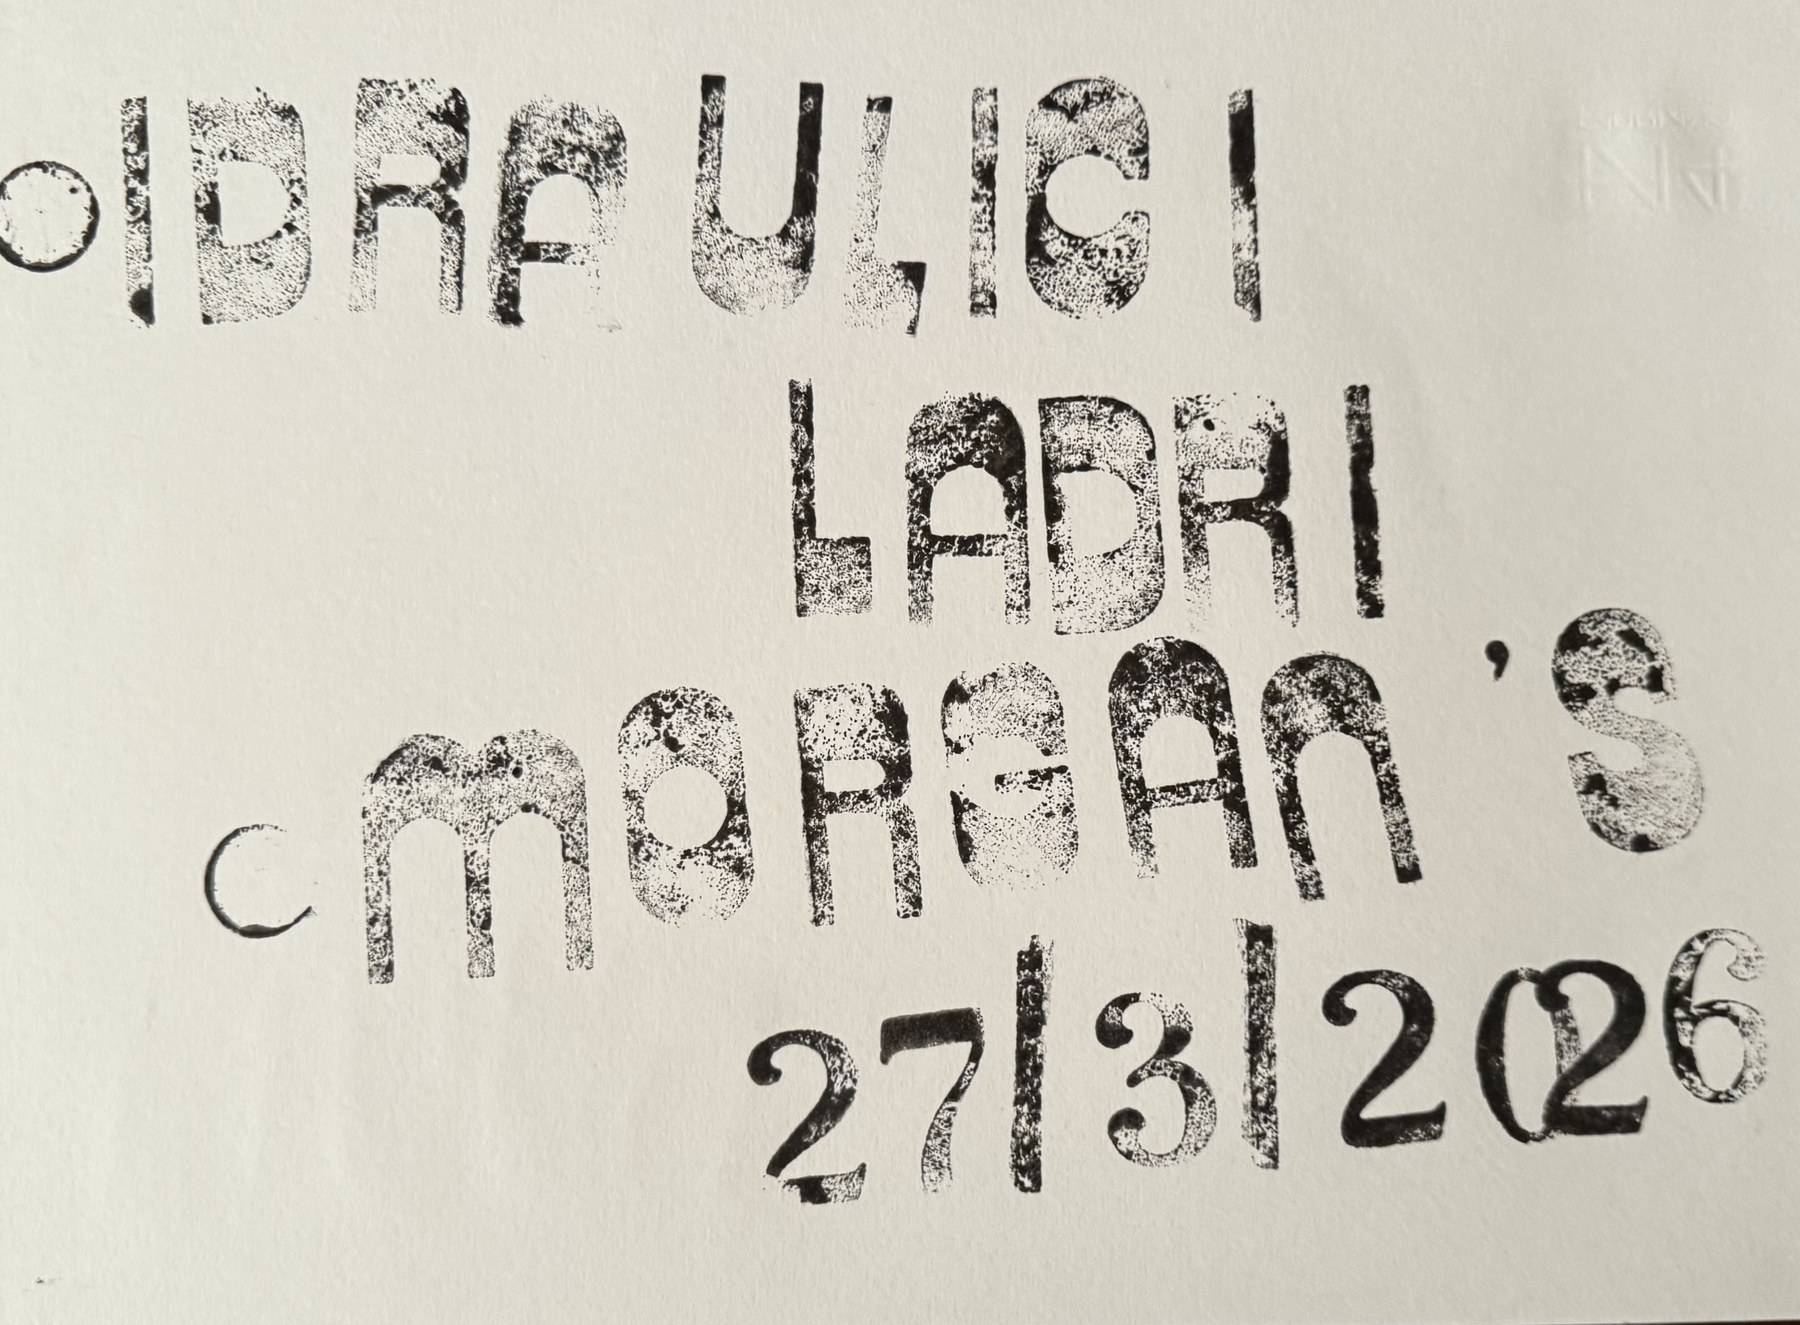 IDRAULICI
LADRI
MORGAN'S
27/3/2026